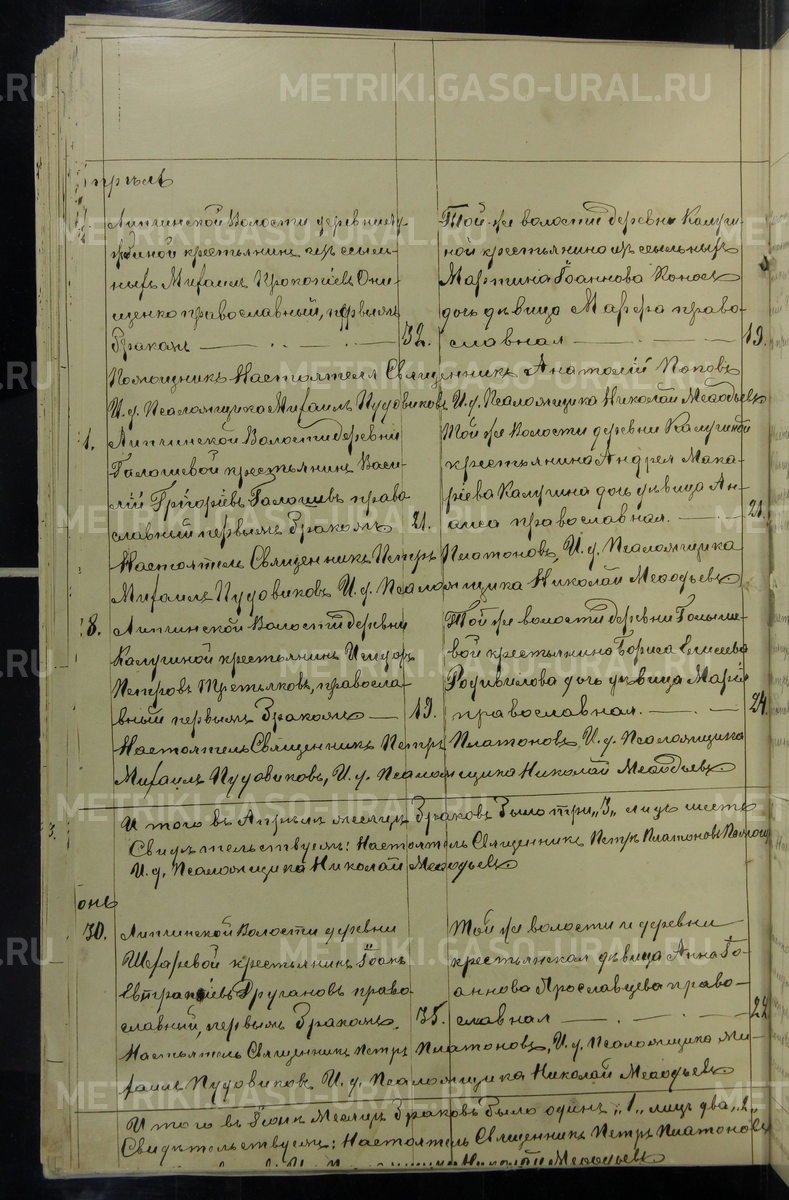 METRIKI.GASO-URAL.RU
прѣль
Липчинской Волости деревни
жиной крестьянинъ изъ ссыль-
ныхъ Михаилъ Прокопіевъ Они-
щенко православный, первымъ
Бракомъ 32.
Той-же волости деревни Калуги-
ной крестьянина изъ ссыльныхъ
Мартина Іоаннова Конось
дочь дѣвица Марѳа право-
славная 19.
Помощникъ Настоятеля Священникъ Анатолій Поповъ
И.д. Псаломщика Михаилъ Пудовиковъ И.д. Псаломщика Николай Меѳодьевъ
1. Липчинской Волости деревни
Галошевой крестьянинъ Васи-
лій Григоріевъ Галошевъ право-
славный первымъ Бракомъ 21.
Той же Волости деревни Калугиной
крестьянина Андрея Мака-
ріева Калугина дочь дѣвица Ан-
православная. 21.
Настоятель Священникъ Петръ Платоновъ, И.д. Псаломщика
Михаилъ Пудовиковъ И.д. Псаломщика Николай Меѳодьевъ
8. Липчинской Волости деревни
Калугиной крестьянинъ Исидоръ
Петровъ Третьяковъ, правосла-
вный первымъ Бракомъ 19.
Той же волости деревни Голыше-
вой крестьянина Бориса Елисеева
дочь дѣвица Марія
православная. 24.
Настоятель Священникъ Петръ Платоновъ, И.д. Псаломщика
Михаилъ Пудовиковъ, И.д. Псаломщика Николай Меѳодьевъ
Итого въ Апрѣлѣ месяцѣ Браковъ Было три „3„ лицъ шесть
Свидѣтельствуемъ: Настоятель Священникъ Петръ Платоновъ
И.д. Псаломщика Николай Меѳодьевъ
юнь
30. Липчинской Волости деревни
крестьянинъ Іоанъ
Другановъ право-
славный, первымъ Бракомъ. 35.
Той же волости и деревни
крестьянская дѣвица Анна Іо-
аннова Ярославцева право-
славная 22
Настоятель Священникъ Петръ Платоновъ, И.д. Псаломщика Ми-
хаилъ Пудовиковъ И.д. Псаломщика Николай Меѳодьевъ
Итого въ Іюнѣ Месяцѣ Браковъ Было одинъ „1„ лицъ два „2„
Свидѣтельствуемъ: Настоятель Священникъ Петръ Платоновъ
Николай Меѳодьевъ